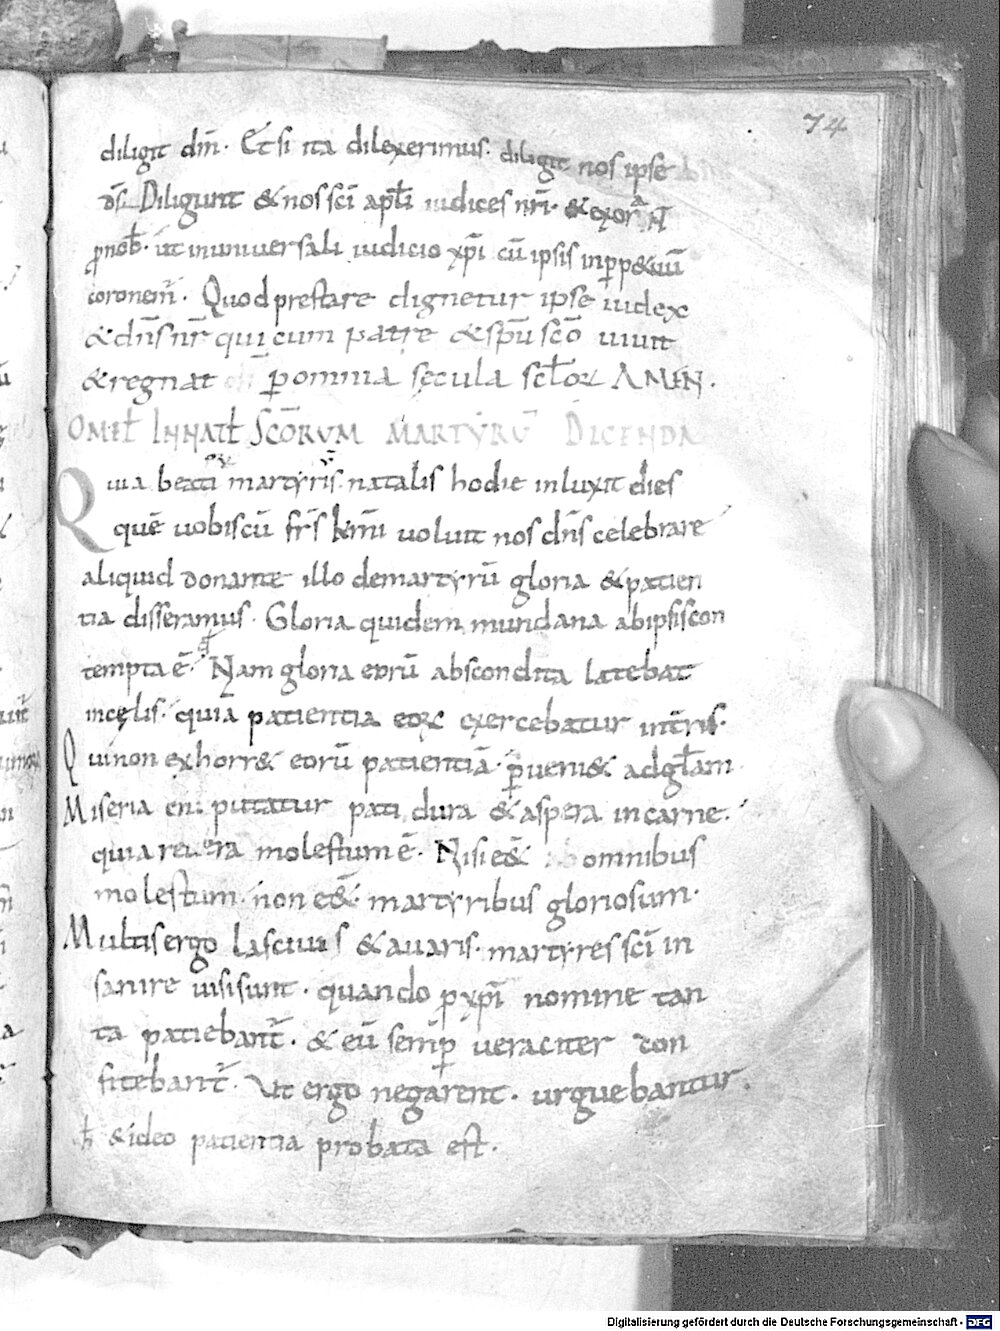 74
diligit dm̄. Et si ita dilexerimus. diligit nos ipse
ds̄. Diligunt & nos sc̄i apłi iudices nr̄i. & exora N̄
p nob̄. ut in uniuersali iudicio xp̄i cū ipsis inꝑp&uū
coronem̄. Quod prestare dignetur ipse iudex
& dn̄s nr̄ qui cum patre & sp̄u sc̄o uiuit
& regnat ꝑ omnia secula scłoꝝ AMEN.
OMEŁ IN NATŁ SCŌRVM MARTYRŪ DICENDA
Quia beati martyris natalis hodie inluxit dies
quē uobiscū fr̄s km̄i uoluit nos dn̄s celebrare
aliquid donante illo de martyrū gloria & patien
tia disseramus. Gloria quidem mundana ab ipsis con
tempta ē. Nam gloria eorū abscondita latebat
in cęlis. quia patientia eoꝝ exercebatur in tr̄is.
Qui non exhorr& eorū patientiā. ꝑueni& ad głam
Miseria eni putatur pati dura & aspera in carne.
quia reuera molestum ē. Nisi e&̄ omnibus
molestum. non e&̄. martyribus gloriosum.
Multis ergo lasciuis & auaris. martyres sc̄i in
sanire uisi sunt. quando p xp̄i nomine tan
ta patiebant̄. & eū semꝑ ueraciter con
fitebant̄. Ut ergo negarent. urguebantur.
& ideo patientia probata est.
Digitalisierung gefördert durch die Deutsche Forschungsgemeinschaft - DFG